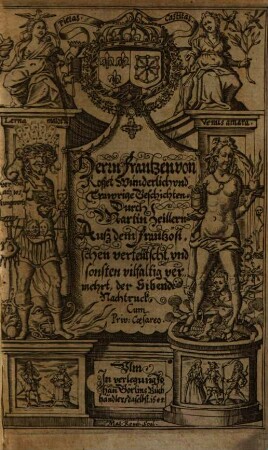 Pietas
Castitas
Lerna malorū
Venus amara
Herrn Frantzen von
Roßet Wunderlich vnd
Trawrige Geschichten
Durch
Martin Zeillern
Auß dem Frantzösi„
schen verteutscht, vnd
sonsten vilfältig ver„
mehrt, der Sibende
Nachtruck.
Cum
Priv: Cæsareo.
Vlm.
In verlegung Jo„
han Görlins Buch„
händlers daselbst.